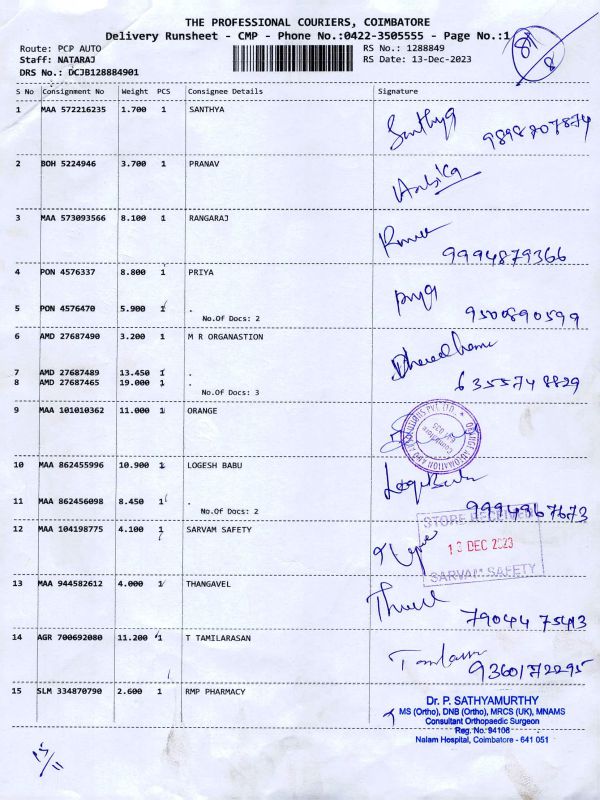 THE PROFESSIONAL COURIERS, COIMBATORE
Delivery Runsheet - CMP - Phone No.:0422-3505555 - Page No.:1
Route: PCP AUTO RS No.: 1288849
Staff: NATARAJ RS Date: 13-Dec-2023
DRS No.: DCJB128884901
87
8
S No Consignment No Weight PCS Consignee Details Signature
1 MAA 572216235 1.700 1 SANTHYA Santhya 9898707874
2 BOH 5224946 3.700 1 PRANAV
3 MAA 573093566 8.100 1 RANGARAJ 9994879366
4 PON 4576337 8.800 1 PRIYA priya
5 PON 4576470 5.900 1 . 9500890599
No.Of Docs: 2
6 AMD 27687490 3.200 1 M R ORGANASTION
7 AMD 27687489 13.450 1 .
8 AMD 27687465 19.000 1 . 6355748829
No.Of Docs: 3
9 MAA 101010362 11.000 1 ORANGE
10 MAA 862455996 10.900 1 LOGESH BABU
11 MAA 862456098 8.450 1 . 9994967673
No.Of Docs: 2
12 MAA 104198775 4.100 1 SARVAM SAFETY STORE RECEIVED
13 DEC 2023
SARVAM SAFETY
13 MAA 944582612 4.000 1 THANGAVEL 79044 75413
14 AGR 700692080 11.200 1 T TAMILARASAN 9360172295
15 SLM 334870790 2.600 1 RMP PHARMACY
Dr. P. SATHYAMURTHY
MS (Ortho), DNB (Ortho), MRCS (UK), MNAMS
Consultant Orthopaedic Surgeon
Reg. No. 94108
Nalam Hospital, Coimbatore - 641 051